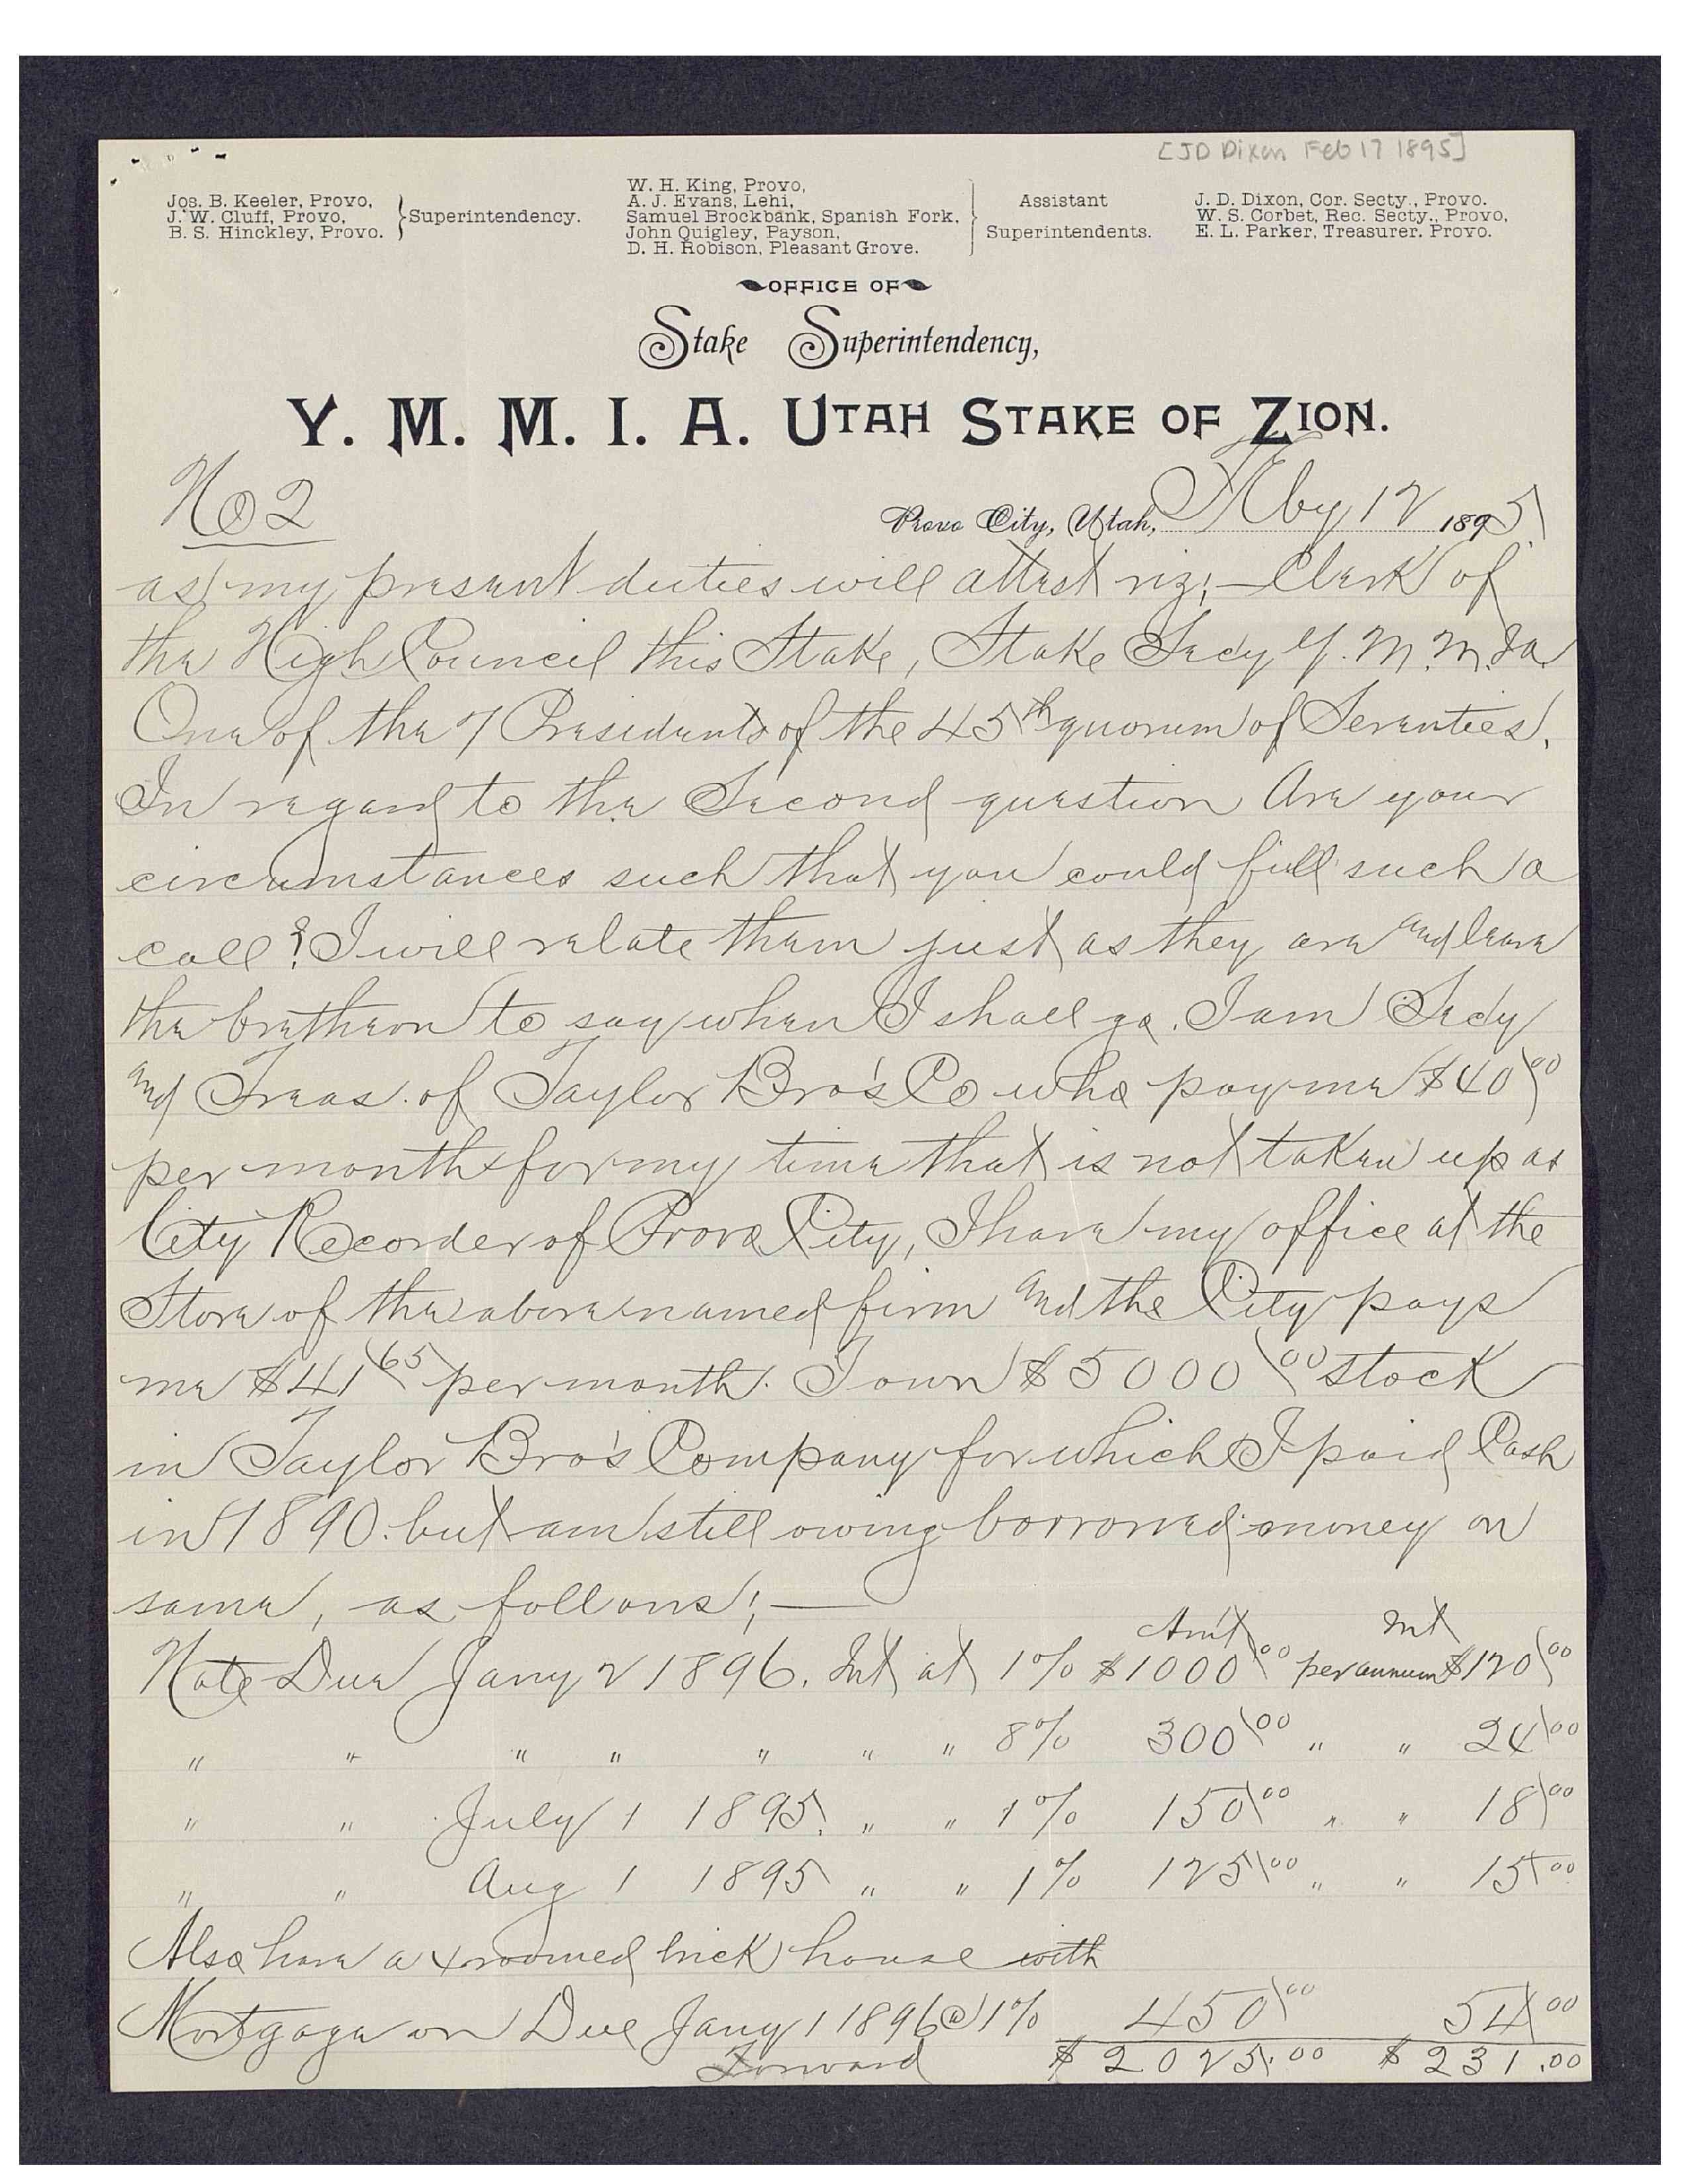 [JD Dixon Feb 17 1895]
Jos. B. Keeler, Provo,
J. W. Cluff, Provo,
B. S. Hinckley, Provo.
Superintendency.
W. H. King, Provo,
A. J. Evans, Lehi,
Samuel Brockbank, Spanish Fork,
John Quigley, Payson,
D. H. Robison, Pleasant Grove.
Assistant
Superintendents.
J. D. Dixon, Cor. Secty., Provo.
W. S. Corbet, Rec. Secty., Provo,
E. L. Parker, Treasurer. Provo.
OFFICE OF
Stake Superintendency,
Y. M. M. I. A. UTAH STAKE OF ZION.
No 2
Provo City, Utah, Feby 12 1895
as my present duties will attest viz;— Clerk of
the High Council this Stake, Stake Secy Y. M. M. I a.
One of the 7 Presidents of the 45th quorum of Seventies.
In regard to the Second question Are your
circumstances such that you could fill such a
call? I will relate them just as they are and leave
the bretheron to say when I shall go. I am Secy
and Treas. of Taylor Bro's Co who pay me $40 00
per month for my time that is not taken up as
City Recorder of Provo City, I have my office at the
Store of the above named firm and the City pays
me $41 65 per month. I own $5000 00 stock
in Taylor Bro's Company for which I paid Cash
in 1890. but am still owing borrowed money on
same, as follows;—
Am't Int
Note Due Jany 2 1896. Int at 1% $1000 00 per annum $120 00
" " " " " " " 8% 300 00 " " 24 00
" " July 1 1895. " " 1% 150 00 " " 18 00
" " Aug 1 1895 " " 1% 125 00 " " 15 00
Also have a 4 roomed brick house with
Mortgage on Due Jany 1 1896 @ 1% 450 00 54 00
Forward $2025.00 $231.00